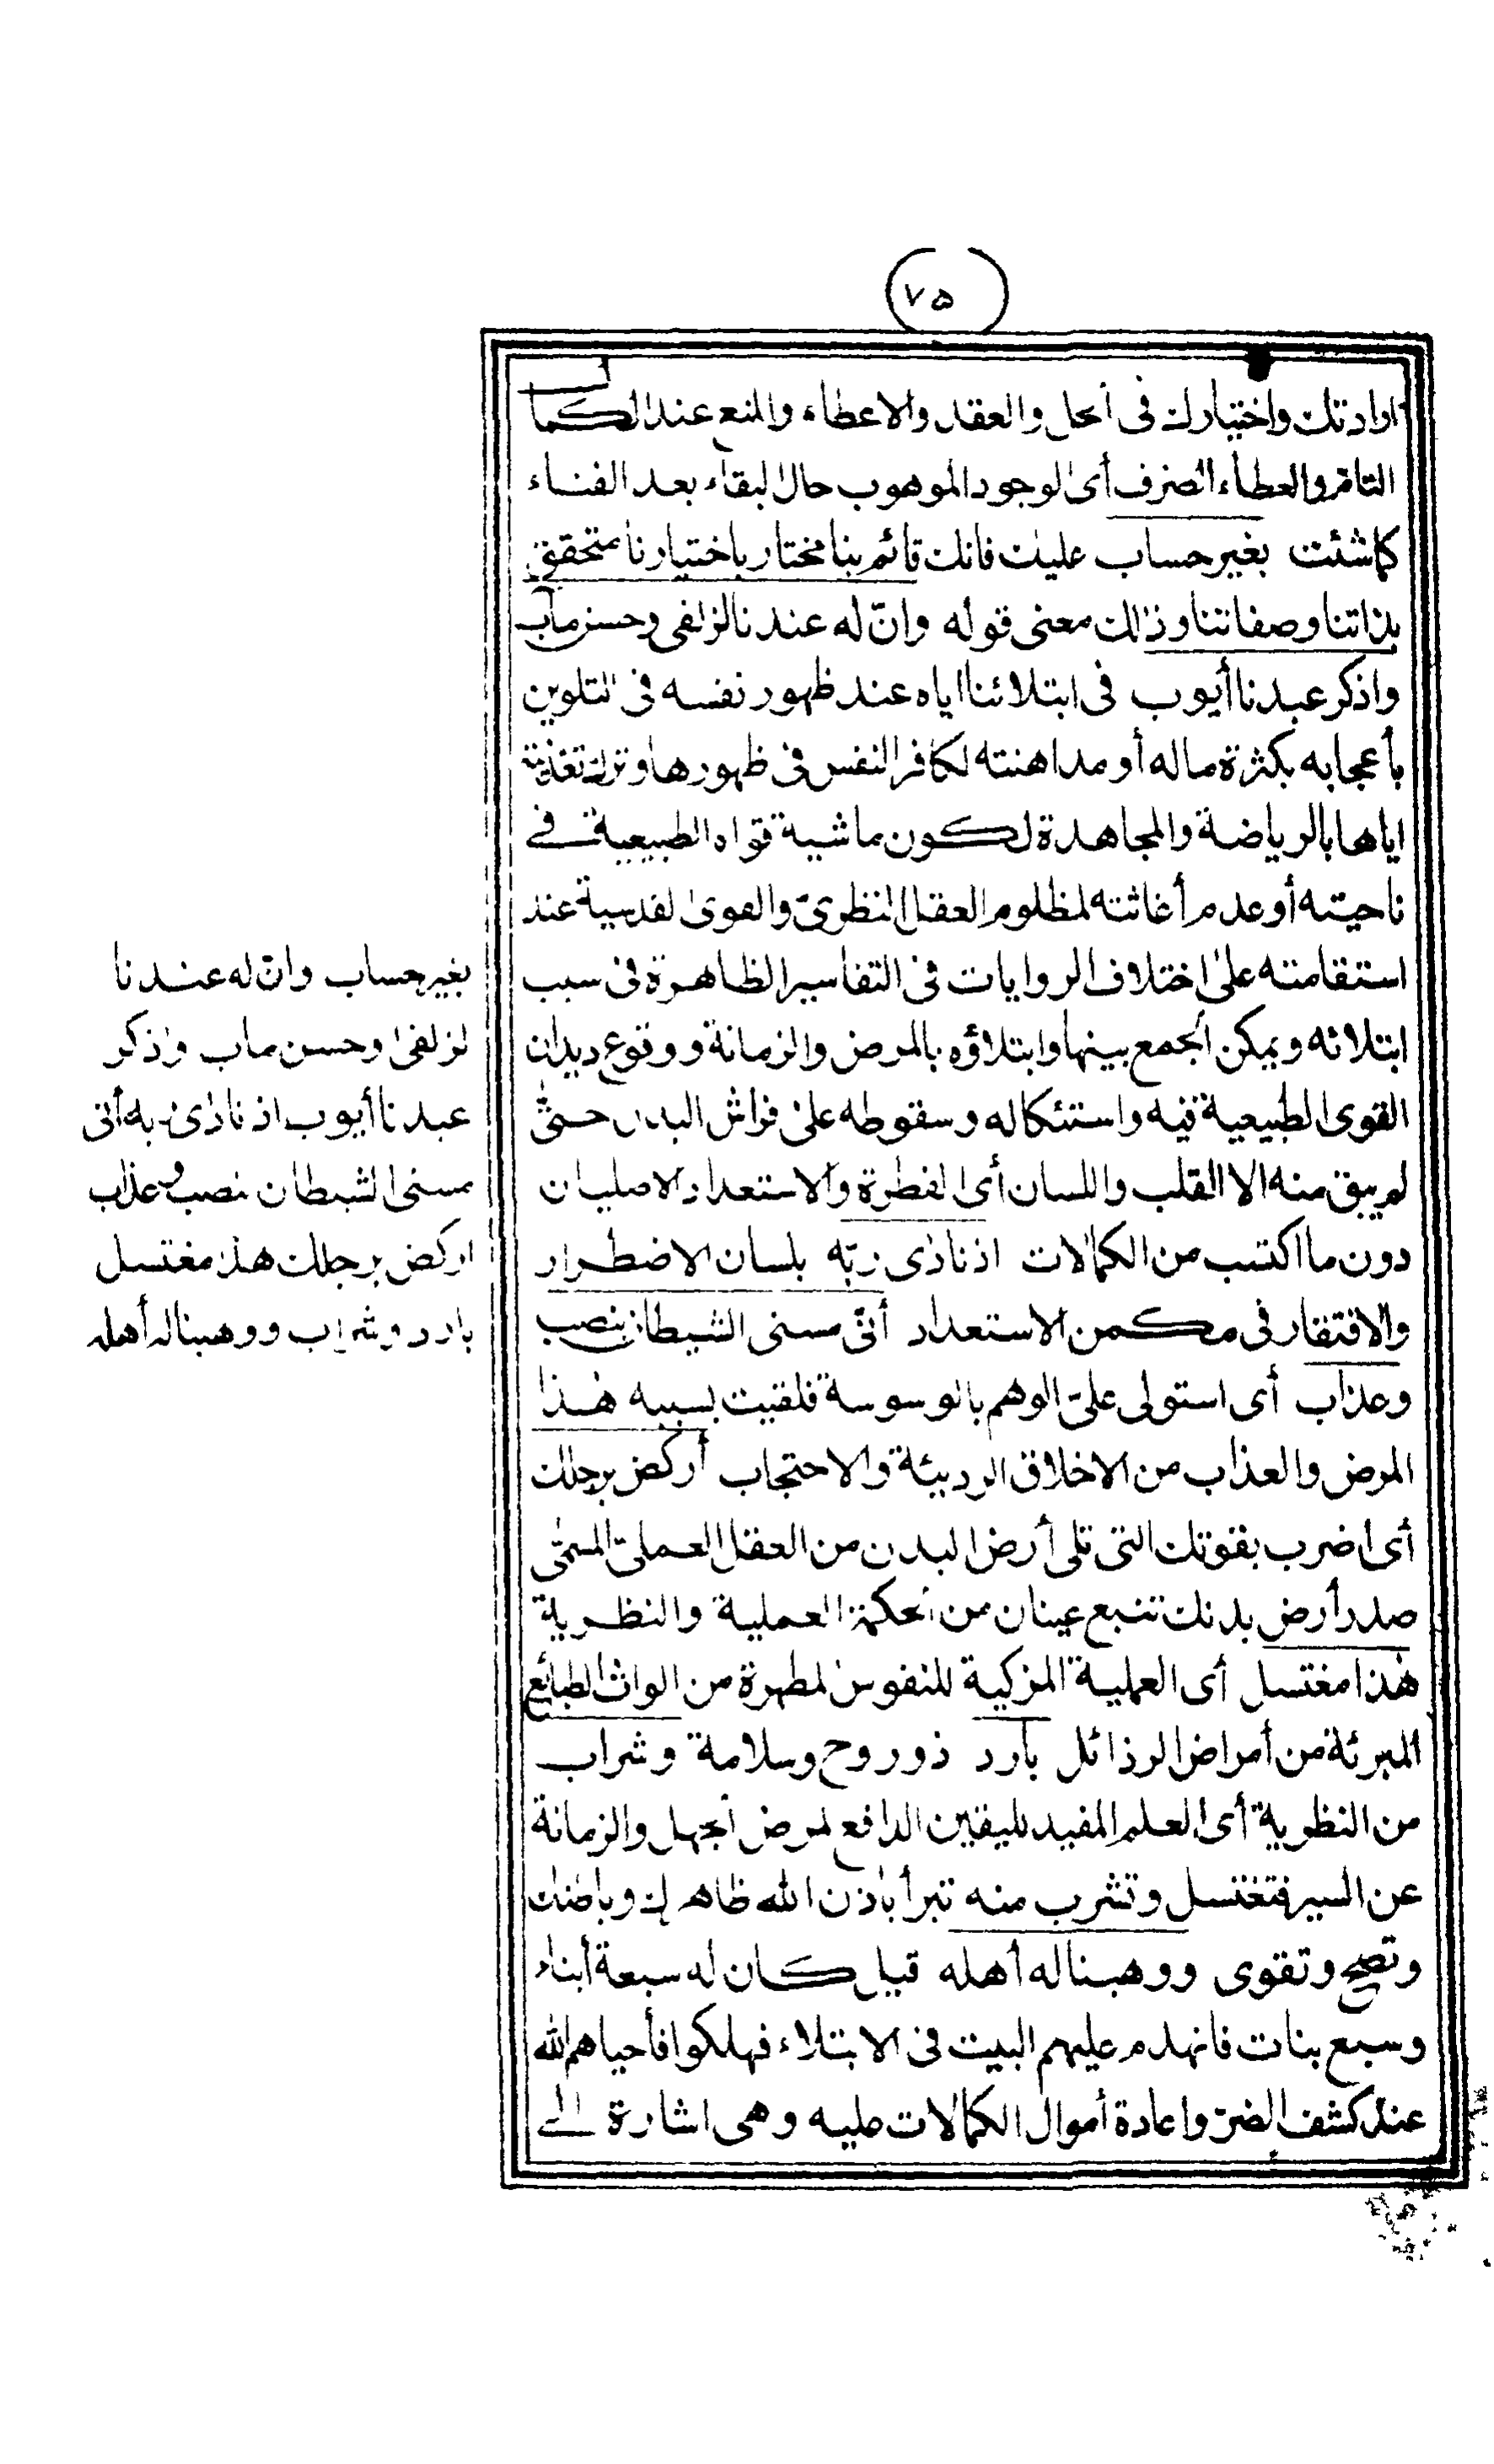 (٧٥)
ارادتك واختيارك فى الحل والعقد والاعطاء والمنع عند الكمال
التام والعطاء الصرف أى الوجود الموهوب حال البقاء بعد الفناء
كما شئت بغير حساب عليك فانك قائم بنا مختار باختيارنا متحقق
بذاتنا وصفاتنا وذلك معنى قوله وانّ له عندنا لزلفى وحسن مآب
واذكر عبدنا أيوب فى ابتلائنا اياه عند ظهور نفسه فى التلوين
بأعجابه بكثرة ماله أو مداهنته لكافر النفس فى ظهورها وترك تغذيته
اياها بالرياضة والمجاهدة لكون ماشية قواه الطبيعية فى
ناحيته أو عدم أغاثته لمظلوم العقل النظرىّ والقوى القدسية عند
استقامته على اختلاف الروايات فى التفاسير الظاهرة فى سبب
ابتلائه ويمكن الجمع بينها وابتلاؤه بالمرض والزمانة ووقوع ديدان
القوى الطبيعية فيه واستئكاله وسقوطه على فراش البدن حتى
لم يبق منه الا القلب واللسان أى الفطرة والاستعداد الاصليان
دون ما اكتسب من الكمالات اذ نادى ربّه بلسان الاضطرار
والافتقار فى مكمن الاستعداد أنّى مسنى الشيطان بنصب
وعذاب أى استولى علىّ الوهم بالوسوسة فلقيت بسببه هذا
المرض والعذاب من الاخلاق الرديئة والاحتجاب أركض برجلك
أى اضرب بقوتك التى تلى أرض البدن من العقل العملىّ المسمى
صدر أرض بدنك تنبع عينان من الحكمة العملية والنظرية
هذا مغتسل أى العملية المزكية للنفوس المطهرة من الواث الطبائع
المبرئة من أمراض الرذائل بارد ذو روح وسلامة وشراب
من النظرية أى العلم المفيد لليقين الدافع لمرض الجهل والزمانة
عن السير فتغتسل وتشرب منه تبرأ باذن الله ظاهرك وباطنك
وتصح وتقوى ووهبنا له أهله قيل كان له سبعة أبناء
وسبع بنات فانهدم عليهم البيت فى الابتلاء فهلكوا فأحياهم الله
عند كشف الضرّ واعادة أموال الكمالات عليه وهى اشارة الى
بغير حساب وانّ له عندنا
لزلفى وحسن ماب واذكر
عبدنا أيوب اذ نادى ربه أنى
مسنى الشيطان بنصب وعذاب
اركض برجلك هذا مغتسل
بارد وشراب ووهبنا له أهله